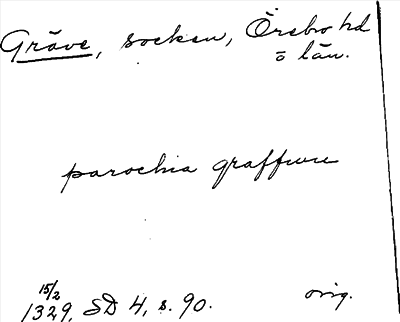 Gräve, socken, Örebro hd
o län.
parochia graffwu
15/2
1329, SD 4, s. 90.
orig.